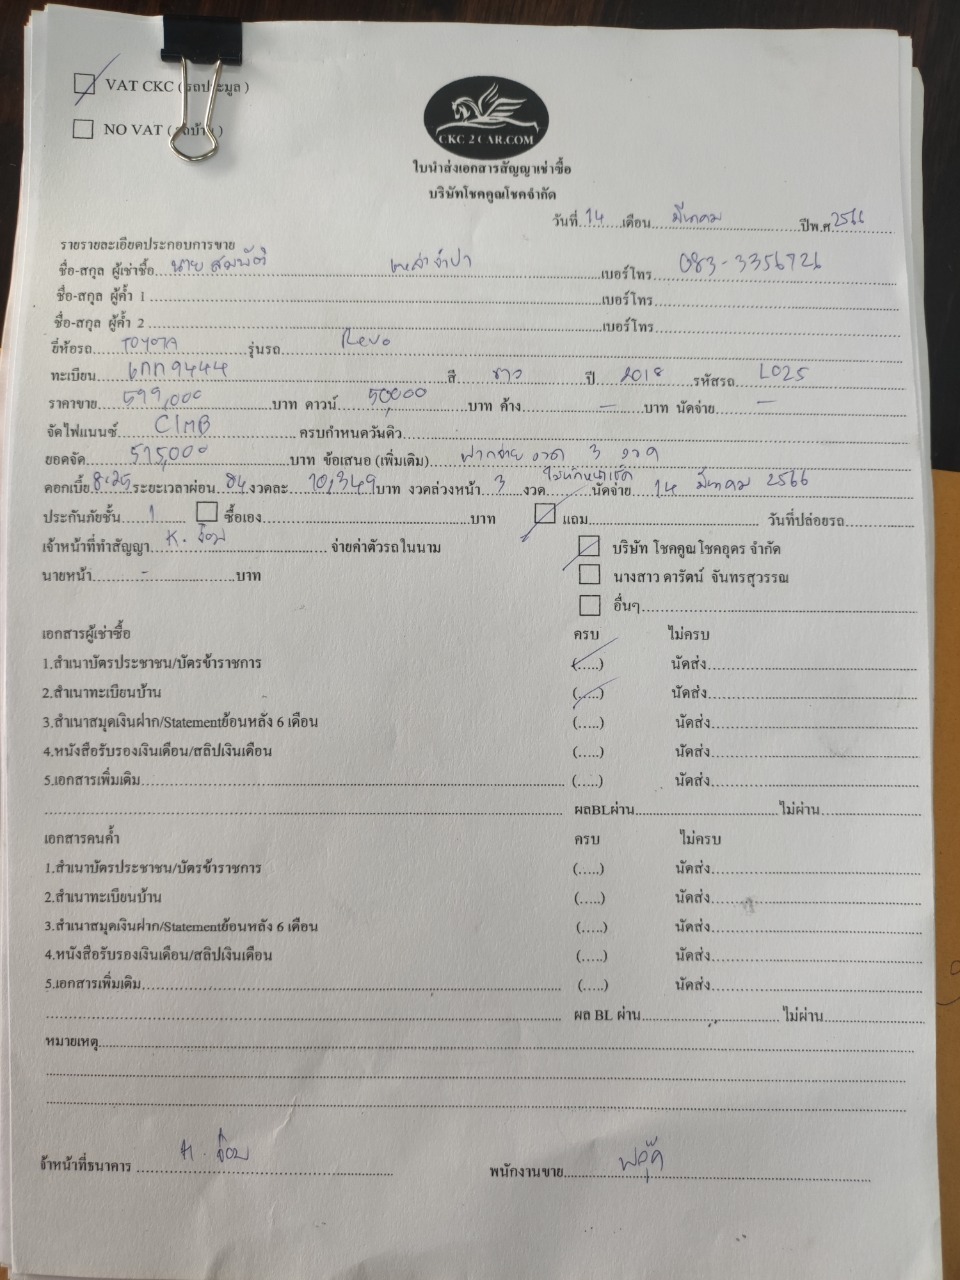 VAT CKC (รถประมูล)
NO VAT (รถบ้าน)
CKC 2 CAR.COM
ใบนำส่งเอกสารสัญญาเช่าซื้อ
บริษัทโชคคูณโชคจำกัด
วันที่ 14 เดือน มีนาคม ปีพ.ศ 2566
รายรายละเอียดประกอบการขาย
ชื่อ-สกุล ผู้เช่าซื้อ นาย สมบัติ เหล่าจำปา เบอร์โทร 083-3356726
ชื่อ-สกุล ผู้ค้ำ 1 เบอร์โทร
ชื่อ-สกุล ผู้ค้ำ 2 เบอร์โทร
ยี่ห้อรถ TOYOTA รุ่นรถ Revo
ทะเบียน 6กก9444 สี ขาว ปี 2018 รหัสรถ L025
ราคาขาย 599,000 บาท ดาวน์ 50,000 บาท ค้าง - บาท นัดจ่าย -
จัดไฟแนนซ์ CIMB ครบกำหนดวันคิว
ยอดจัด 575,000 บาท ข้อเสนอ (เพิ่มเติม) ฝากจ่าย งวด 3 งวด
ดอกเบี้ย 8.25 ระยะเวลาผ่อน 84 งวดละ 10,349 บาท งวดล่วงหน้า 3 งวด ไม่หักหน้าเช็ค นัดจ่าย 14 มีนาคม 2566
ประกันภัยชั้น 1 ซื้อเอง บาท แถม วันที่ปล่อยรถ
เจ้าหน้าที่ทำสัญญา K. จ๊อบ จ่ายค่าตัวรถในนาม บริษัท โชคคูณโชคอุดร จำกัด
นายหน้า - บาท นางสาว ดารัตน์ จันทรสุวรรณ
อื่นๆ
เอกสารผู้เช่าซื้อ ครบ ไม่ครบ
1.สำเนาบัตรประชาชน/บัตรข้าราชการ (.....) นัดส่ง
2.สำเนาทะเบียนบ้าน (.....) นัดส่ง
3.สำเนาสมุดเงินฝาก/Statementย้อนหลัง 6 เดือน (.....) นัดส่ง
4.หนังสือรับรองเงินเดือน/สลิปเงินเดือน (.....) นัดส่ง
5.เอกสารเพิ่มเติม (.....) นัดส่ง
ผลBLผ่าน ไม่ผ่าน
เอกสารคนค้ำ ครบ ไม่ครบ
1.สำเนาบัตรประชาชน/บัตรข้าราชการ (.....) นัดส่ง
2.สำเนาทะเบียนบ้าน (.....) นัดส่ง
3.สำเนาสมุดเงินฝาก/Statementย้อนหลัง 6 เดือน (.....) นัดส่ง
4.หนังสือรับรองเงินเดือน/สลิปเงินเดือน (.....) นัดส่ง
5.เอกสารเพิ่มเติม (.....) นัดส่ง
ผล BL ผ่าน ไม่ผ่าน
หมายเหตุ
จ้าหน้าที่ธนาคาร K. จ๊อบ พนักงานขาย